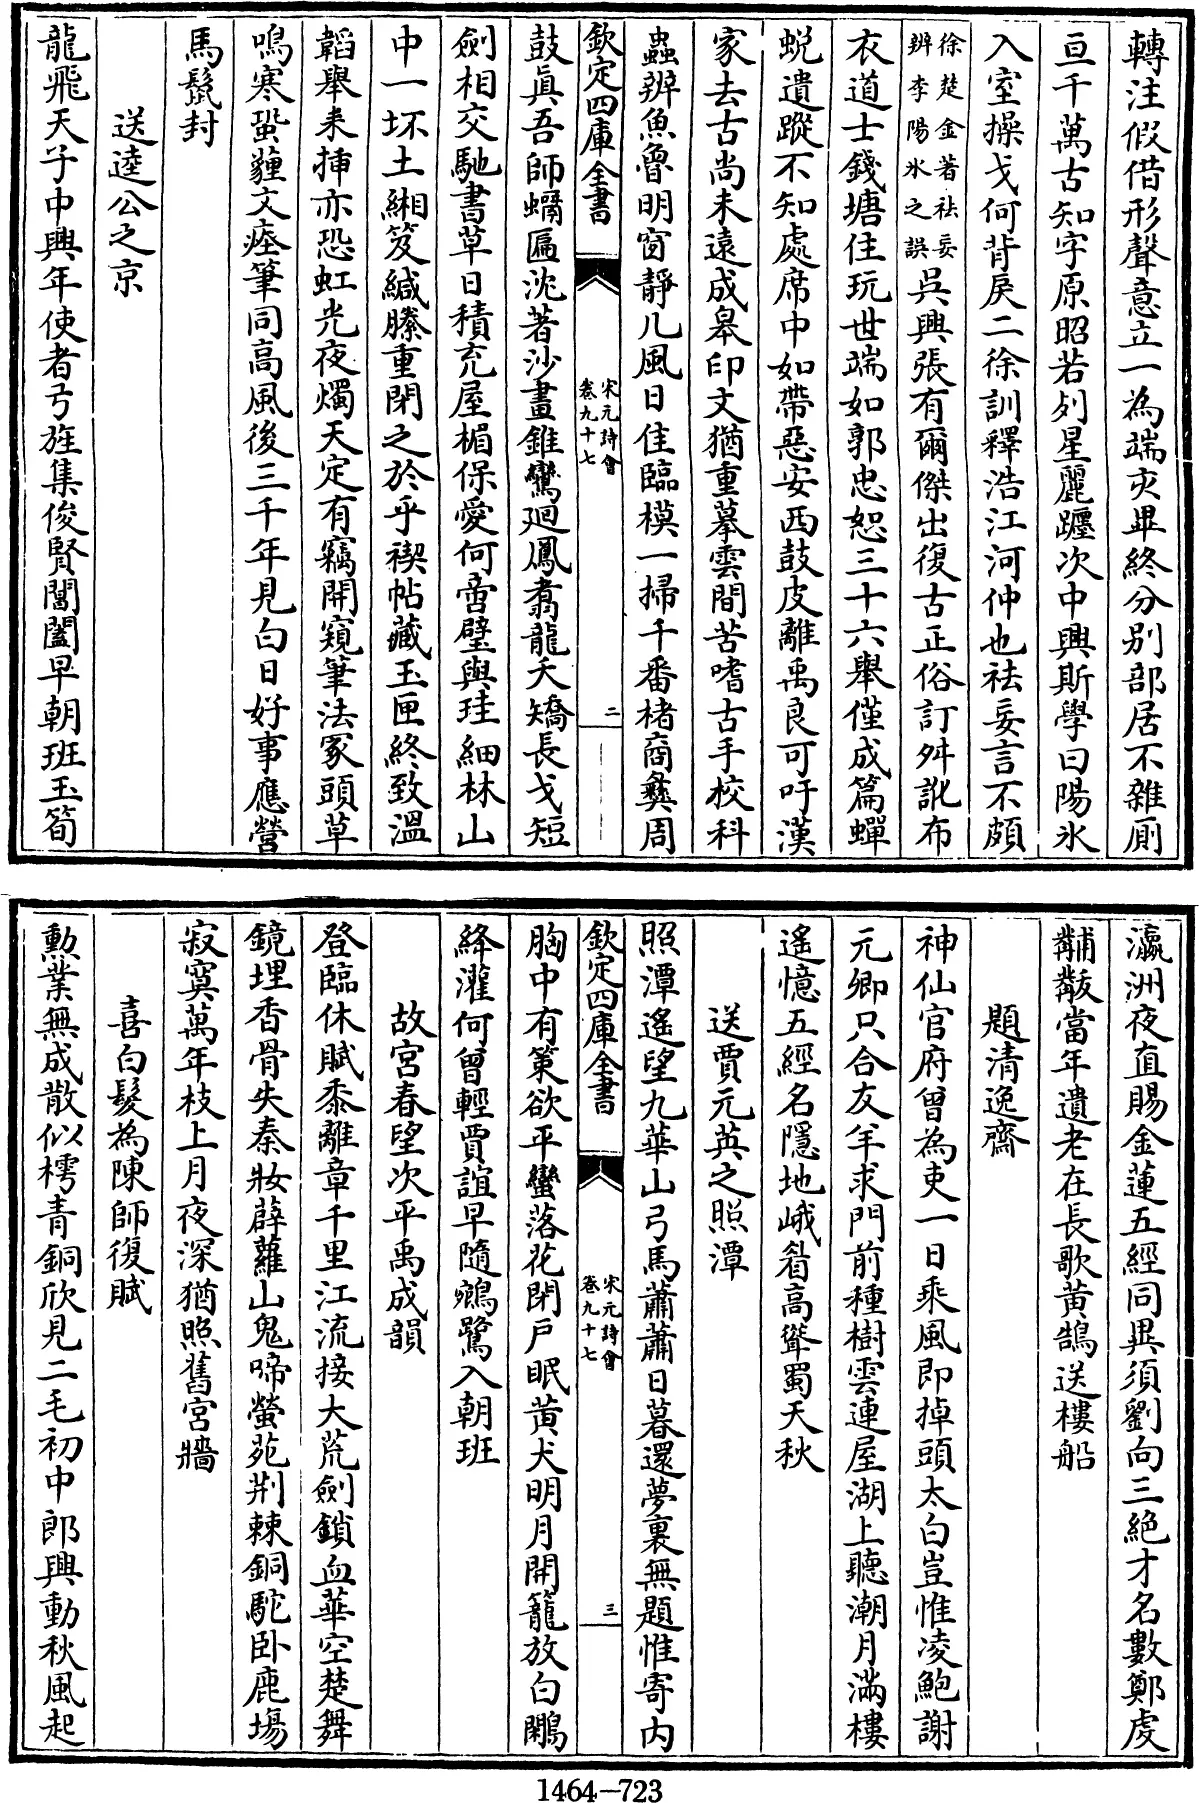 轉注假借形聲意立一為端亥畢終分别部居不雜厠
亘千萬古知字原昭若列星麗躔次中興斯學曰陽氷
入室操戈何背戾二徐訓釋浩江河仲也祛妄言不頗
徐楚金著祛妄
辨李陽氷之誤
吳興張有爾傑出復古正俗訂舛訛布
衣道士錢塘住玩世端如郭忠恕三十六舉僅成篇蟬
蛻遺蹤不知處席中如帶惡安西鼓皮離禹良可吁漢
家去古尚未遠成皋印文猶重摹雲間苦嗜古手校科
蟲辨魚魯明窗靜几風日佳臨模一掃千番楮商彝周
欽定四庫全書
宋元詩會
卷九十七
二
鼓眞吾師蠣匾沈著沙畫錐鸞廻鳳翥龍夭矯長戈短
劍相交馳書草日積充屋楣保愛何啻璧與珪細林山
中一坏土緗笈緘縢重閉之於乎禊帖藏玉匣終致溫
韜舉耒揷亦恐虹光夜燭天定有竊開窺筆法冢頭草
鳴寒蛩薶文瘞筆同高風後三千年見白日好事應營
馬鬛封
送逵公之京
龍飛天子中興年使者弓旌集俊賢閶闔早朝班玉筍
瀛洲夜直賜金蓮五經同異須劉向三絶才名數鄭虔
黼黻當年遺老在長歌黄鵠送樓船
題清逸齋
神仙官府曾為吏一日乘風即掉頭太白豈惟凌鮑謝
元卿只合友羊求門前種樹雲連屋湖上聽潮月滿樓
遥憶五經名隱地峨眉高聳蜀天秋
送賈元英之照潭
照潭遥望九華山弓馬蕭蕭日暮還夢裏無題惟寄内
欽定四庫全書
宋元詩會
卷九十七
三
胸中有策欲平蠻落花閉戶眠黄犬明月開籠放白鷴
絳灌何曾輕賈誼早隨鵷鷺入朝班
故宫春望次平禹成韻
登臨休賦黍離章千里江流接大荒劍鎖血華空楚舞
鏡埋香骨失秦妝薜蘿山鬼啼螢苑荆棘銅駝卧鹿場
寂寞萬年枝上月夜深猶照舊宫牆
喜白髮為陳師復賦
勳業無成散似樗青銅欣見二毛初中郎興動秋風起
1464-723